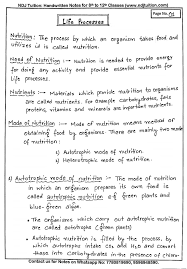 NDJ Tuition: Handwritten Notes for 9th to 12th Classes (www.ndjtuition.com)
Page No. 01
Life Processes
Nutrition: The process by which an organism takes food and
utilizes it is called nutrition.
Need of Nutrition :- nutrition is needed to provide energy
for doing any activity and provide essential nutrients for
life processes.
Nutrients :- Materials which provide nutrition to organisms
are called nutrients. For example carbohydrates, fats
proteins, vitamins and minerals are important nutrients.
Mode of Nutrition :- Mode of nutrition means method of
obtaining food by organisms There are mainly two mode
of nutrition:
i) Autotrophic mode of nutrition
ii) Heterotrophic mode of nutrition.
i) Autotrophic mode of nutrition : The mode of nutrition
in which an organism prepares its own food is
called autotrophic nutrition e.g. green plants
and blue-green algae.
The organisms which carry out autotrophic nutrition
are called autotrophs (green plants)
Autotrophic nutrition is fulfilled by the process, by
which autotrophs intake CO2 and H2O and convert
these into carbohydrates in the presence of chloro-
Contact us for Notes on Whatsapp No: